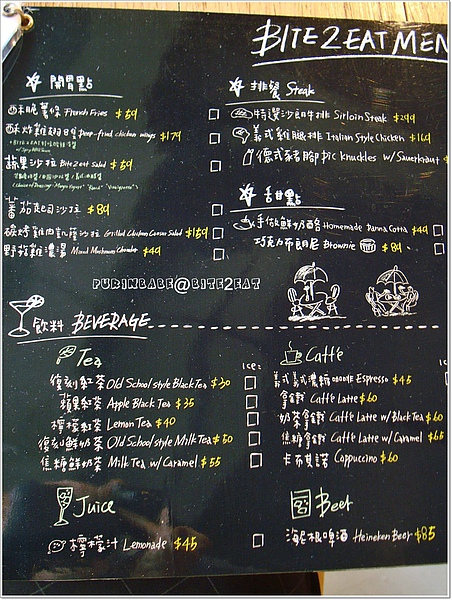 BITE2EAT MEN
開胃點
酥脆薯條 French Fries $59
酥炸雞翅 Deep-fried chicken wings $179
蔬果沙拉 Bite2eat Salad $59
蕃茄起司沙拉 $89
碳烤雞肉凱薩沙拉 Grilled Chicken Caesar Salad $159
野菇雞濃湯 Mixed Mushroom Chowder $49
排餐 Steak
特選沙朗牛排 Sirloin Steak $299
義式雞腿排 Italian Style Chicken $169
德式豬腳 Pic Knuckles w/ Sauerkraut $
甜點
手做鮮奶酪 Homemade Panna Cotta $49
巧克力布朗尼 Brownie $89
PURINBABE@BITE2EAT
飲料 BEVERAGE
Tea
ICE:
復刻紅茶 Old School style Black Tea $30
蘋果紅茶 Apple Black Tea $35
檸檬紅茶 Lemon Tea $40
復刻鮮奶茶 Old School style Milk Tea $50
焦糖鮮奶茶 Milk Tea w/ Caramel $55
Caffé
義式濃縮 Espresso $45
拿鐵 Caffé Latte $60
奶茶拿鐵 Caffé Latte w/ Black Tea $60
焦糖拿鐵 Caffé Latte w/ Caramel $65
卡布其諾 Cappuccino $60
Juice
檸檬汁 Lemonade $45
Beer
海尼根啤酒 Heineken Beer $85